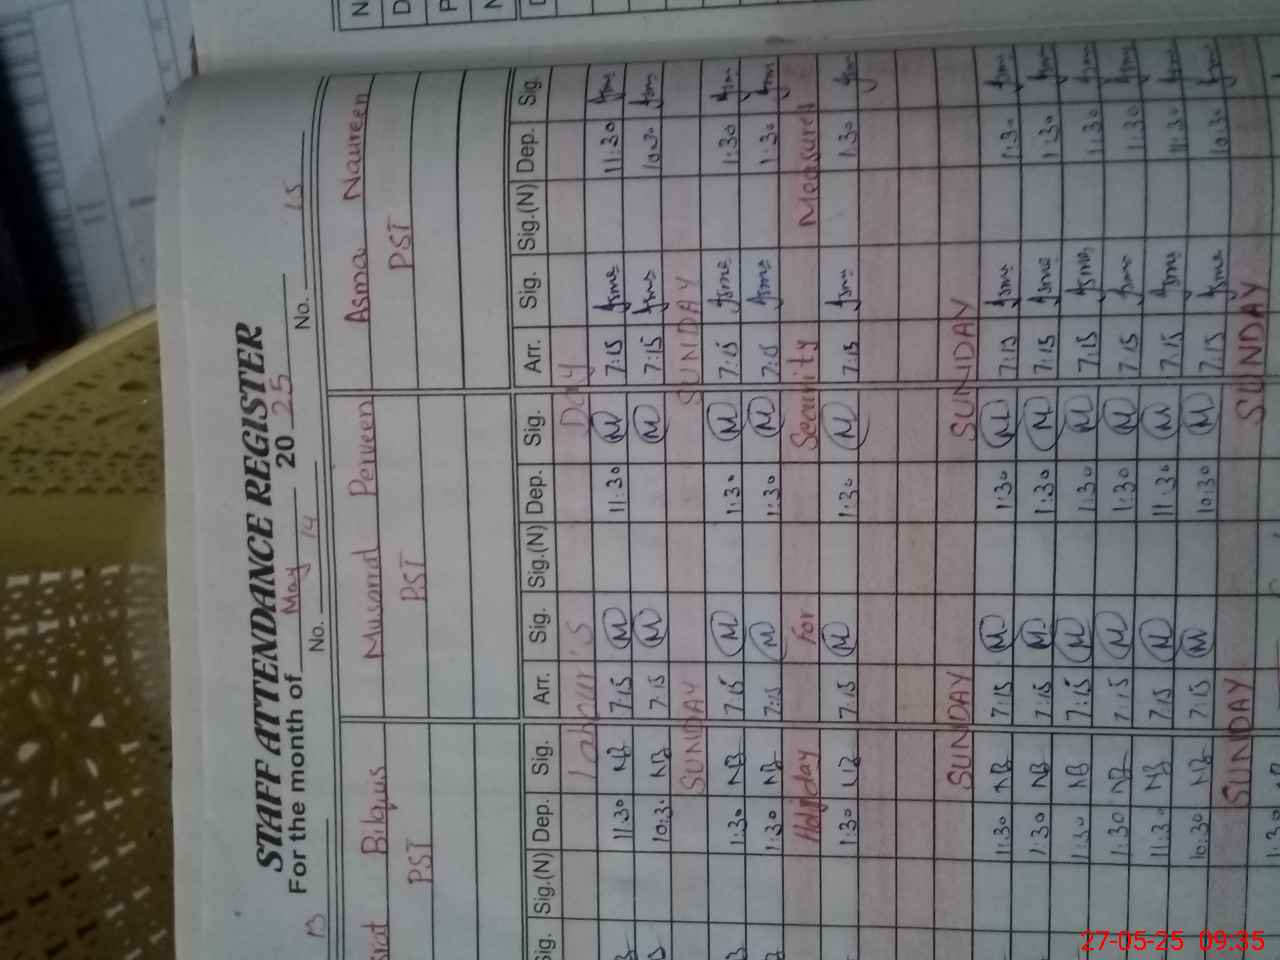 STAFF ATTENDANCE REGISTER
For the month of May 2025
13 No. 14 No. 15
Bilquis Musarrat Perveen Asma Naureen
PST PST PST
Sig. Sig.(N) Dep. Sig. Arr. Sig. Sig.(N) Dep. Sig. Arr. Sig. Sig.(N) Dep. Sig.
Labour's Day
11:30 NB 7:15 M 11:30 M 7:15 Asma 11:30 Asma
10:30 NB 7:15 M M 7:15 Asma 10:30 Asma
SUNDAY SUNDAY
1:30 NB 7:15 M 1:30 M 7:15 Asma 1:30 Asma
1:30 NB 7:15 M 1:30 M 7:15 Asma 1:30 Asma
Holiday For Security Measures
1:30 NB 7:15 M 1:30 M 7:15 Asma 1:30 Asma
SUNDAY SUNDAY SUNDAY
11:30 NB 7:15 M 1:30 M 7:15 Asma 1:30 Asma
1:30 NB 7:15 M 1:30 M 7:15 Asma 1:30 Asma
1:30 NB 7:15 M 1:30 M 7:15 Asma 1:30 Asma
1:30 NB 7:15 M 1:30 M 7:15 Asma 1:30 Asma
11:30 NB 7:15 M 11:30 M 7:15 Asma 11:30 Asma
10:30 NB 7:15 M 10:30 M 7:15 Asma 10:30 Asma
SUNDAY SUNDAY
1:30
27-05-25 09:35